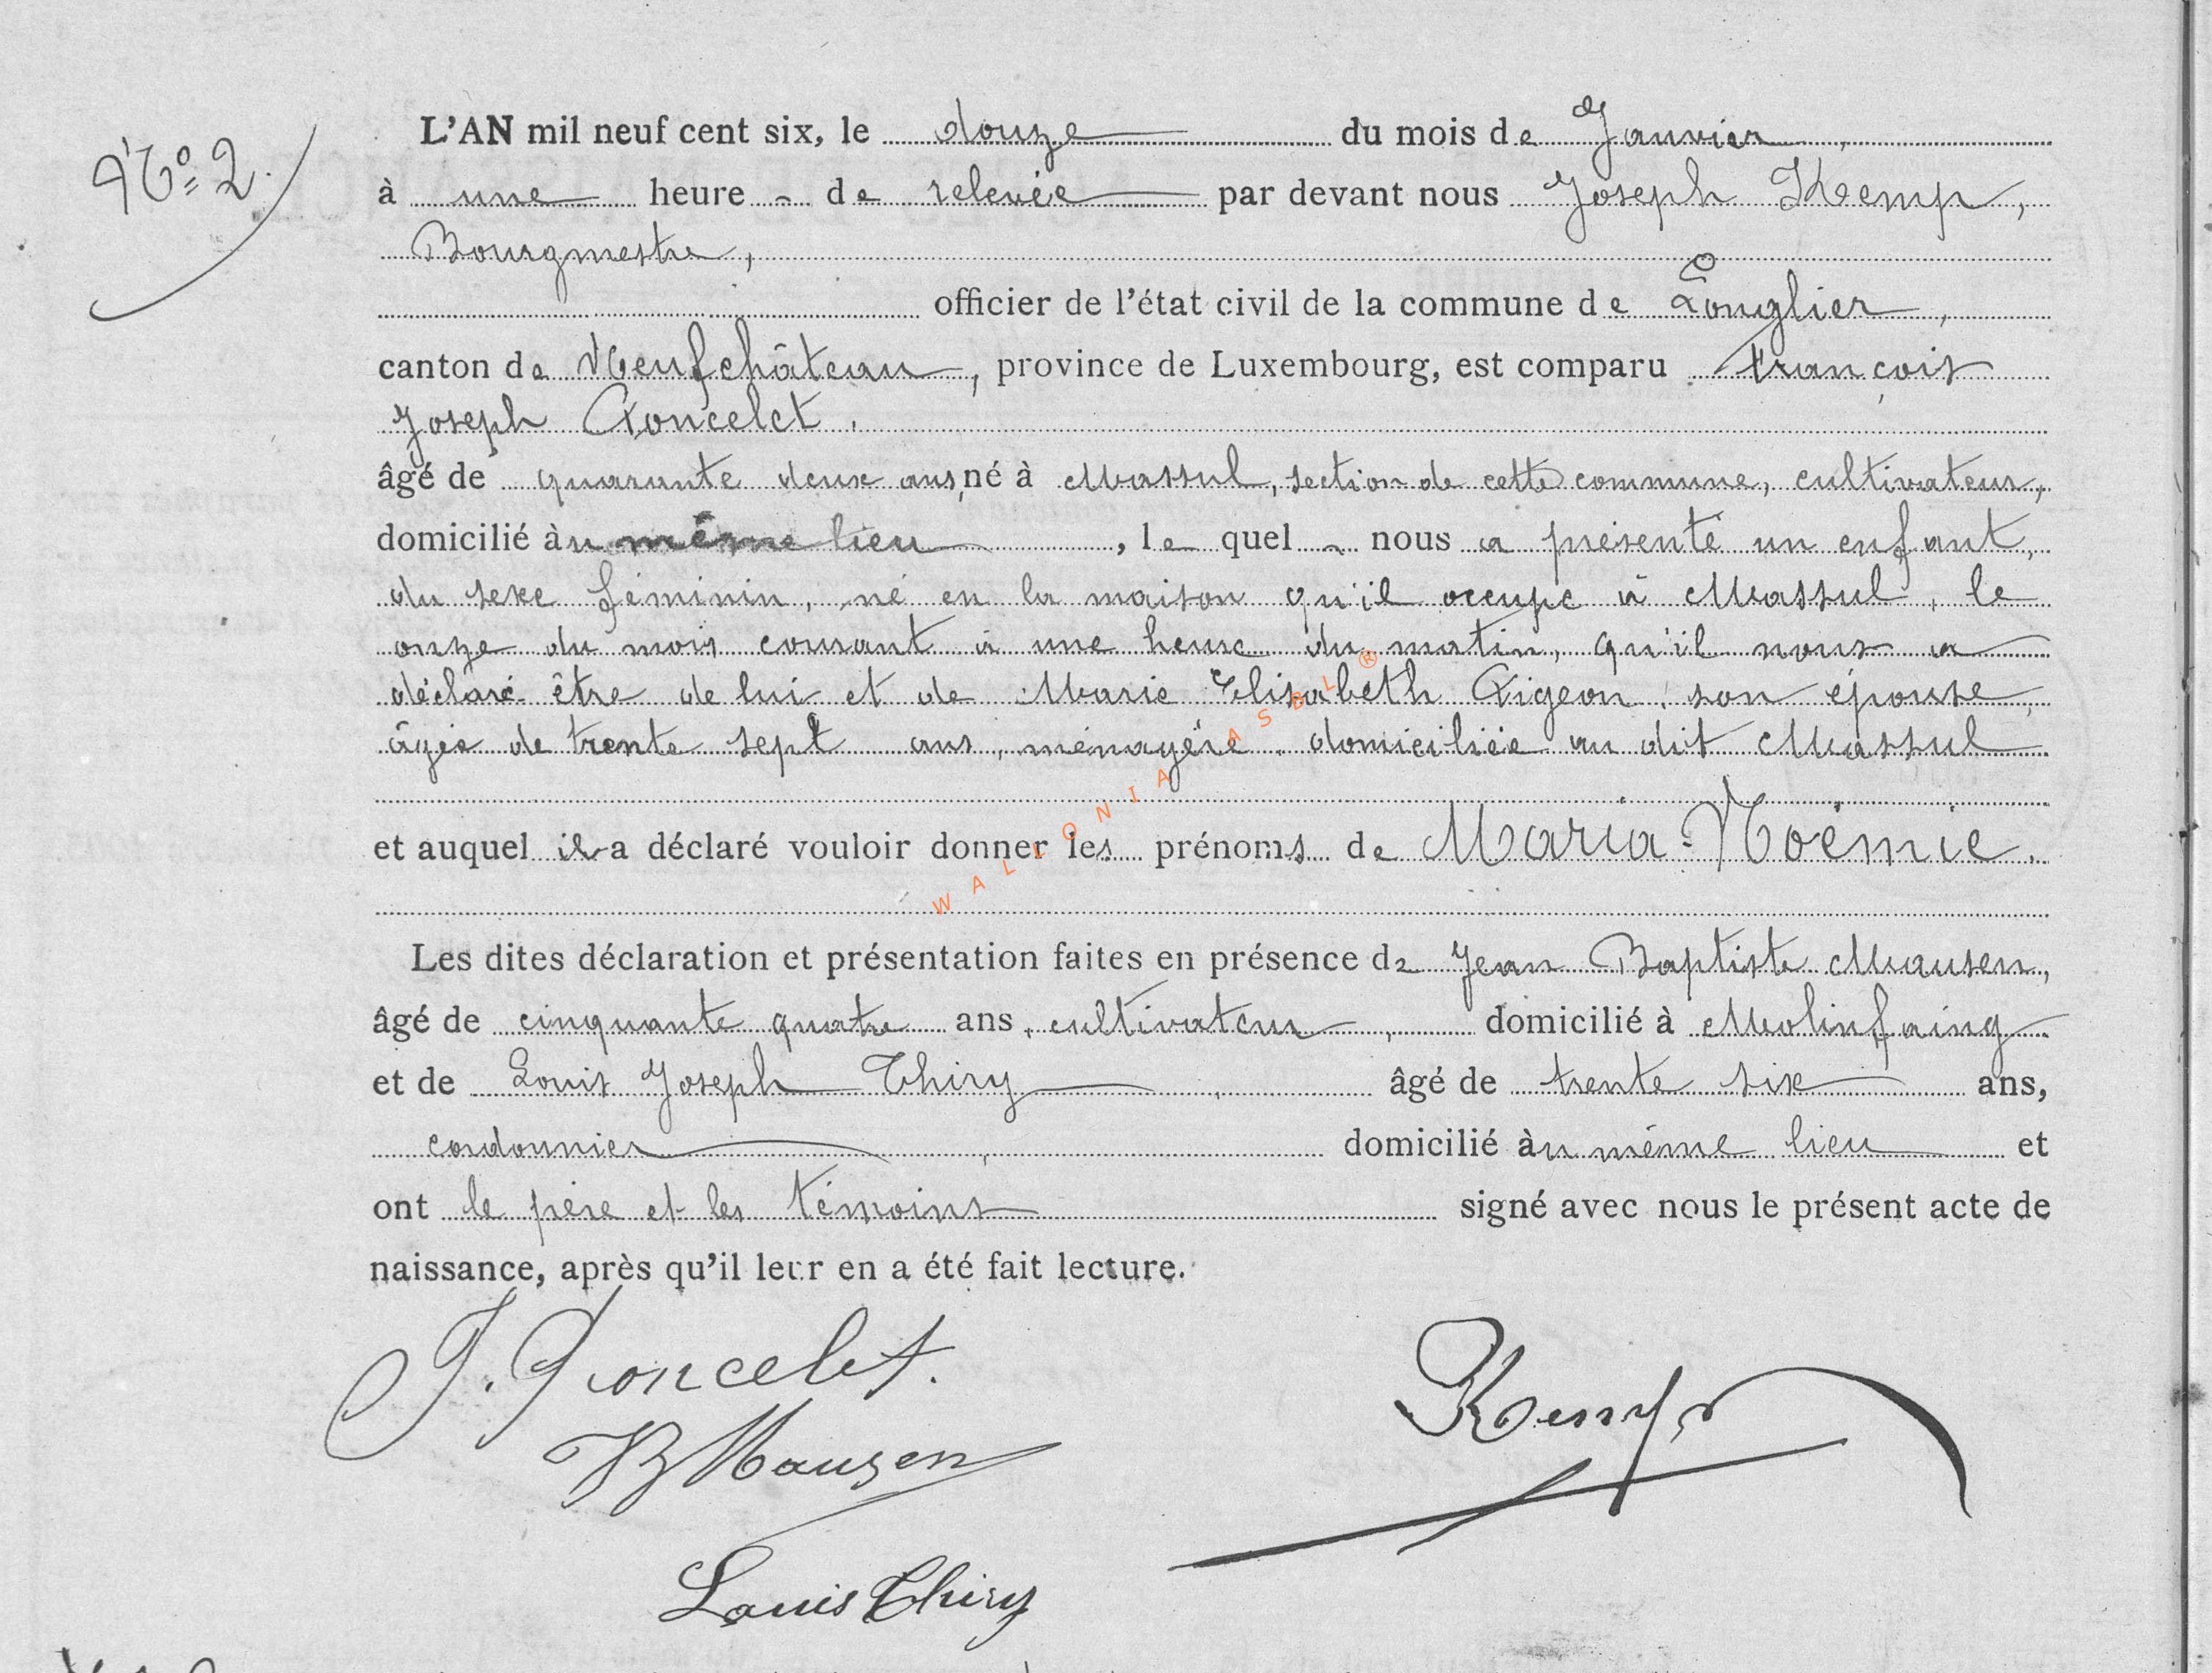 N° 2.
L'AN mil neuf cent six, le douze du mois de Janvier,
à une heure - de relevée par devant nous Joseph Kemp,
Bourgmestre,
officier de l'état civil de la commune de Longlier,
canton de Neufchâteau, province de Luxembourg, est comparu François
Joseph Poncelet,
âgé de quarante deux ans, né à Massul, section de cette commune, cultivateur,
domicilié àu même lieu, le quel - nous a présenté un enfant,
du sexe féminin, né en la maison qu'il occupe à Massul, le
onze du mois courant à une heure du matin, qu'il nous a
déclaré être de lui et de Marie Elisabeth Pigeon, son épouse,
âgée de trente sept ans, ménagère, domiciliée au dit Massul
et auquel il a déclaré vouloir donner les prénoms de Maria-Noémie.
Les dites déclaration et présentation faites en présence de Jean Baptiste Mausen,
âgé de cinquante quatre ans, cultivateur, domicilié à Molinfaing
et de Louis Joseph Thiry, âgé de trente six ans,
cordonnier, domicilié àu même lieu et
ont le père et les témoins signé avec nous le présent acte de
naissance, après qu'il leur en a été fait lecture.
J. Poncelet.
Kemp
JB Mausen
Louis Thiry
WALLONIA ASBL ®